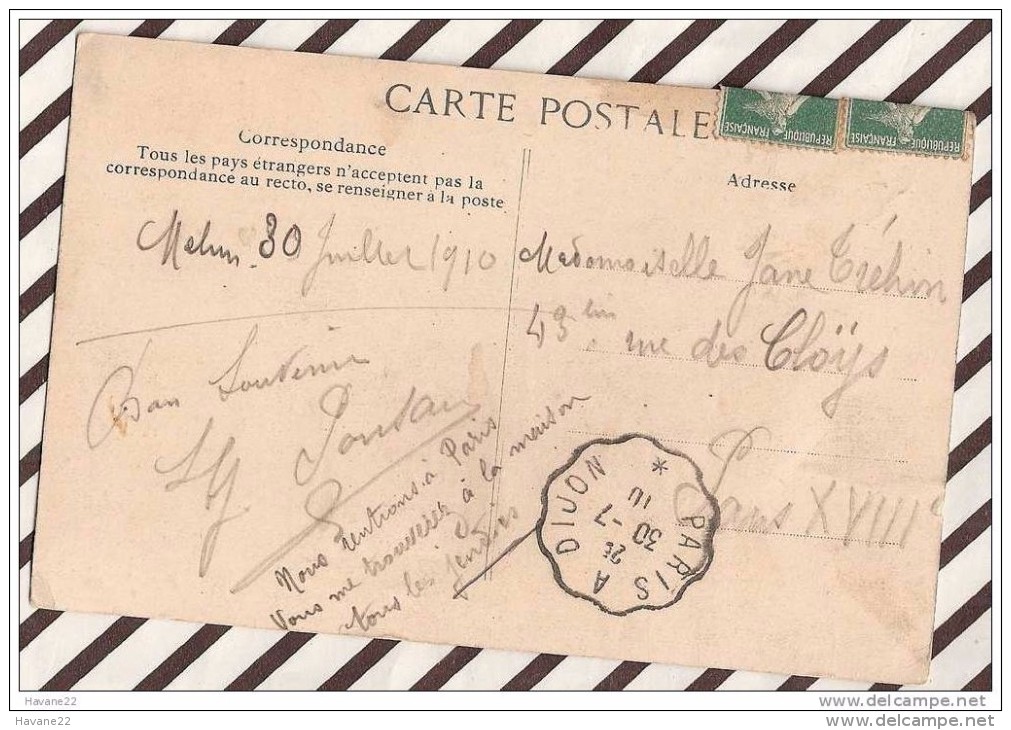 CARTE POSTALE
REPUBLIQUE FRANÇAISE
REPUBLIQUE FRANÇAISE
Correspondance
Tous les pays étrangers n'acceptent pas la
correspondance au recto, se renseigner à la poste
Adresse
Melun 30 Juillet 1910
Bon Souvenir
Nous rentrons à Paris
Vous me trouverez à la maison
tous les jeudis
Mademoiselle Jane Tréhin
43 rue des Cloÿs
Paris XVIIIe
PARIS A DIJON
2E
30 -7
10
*
Havane22
Havane22
delcampe.net
delcampe.net